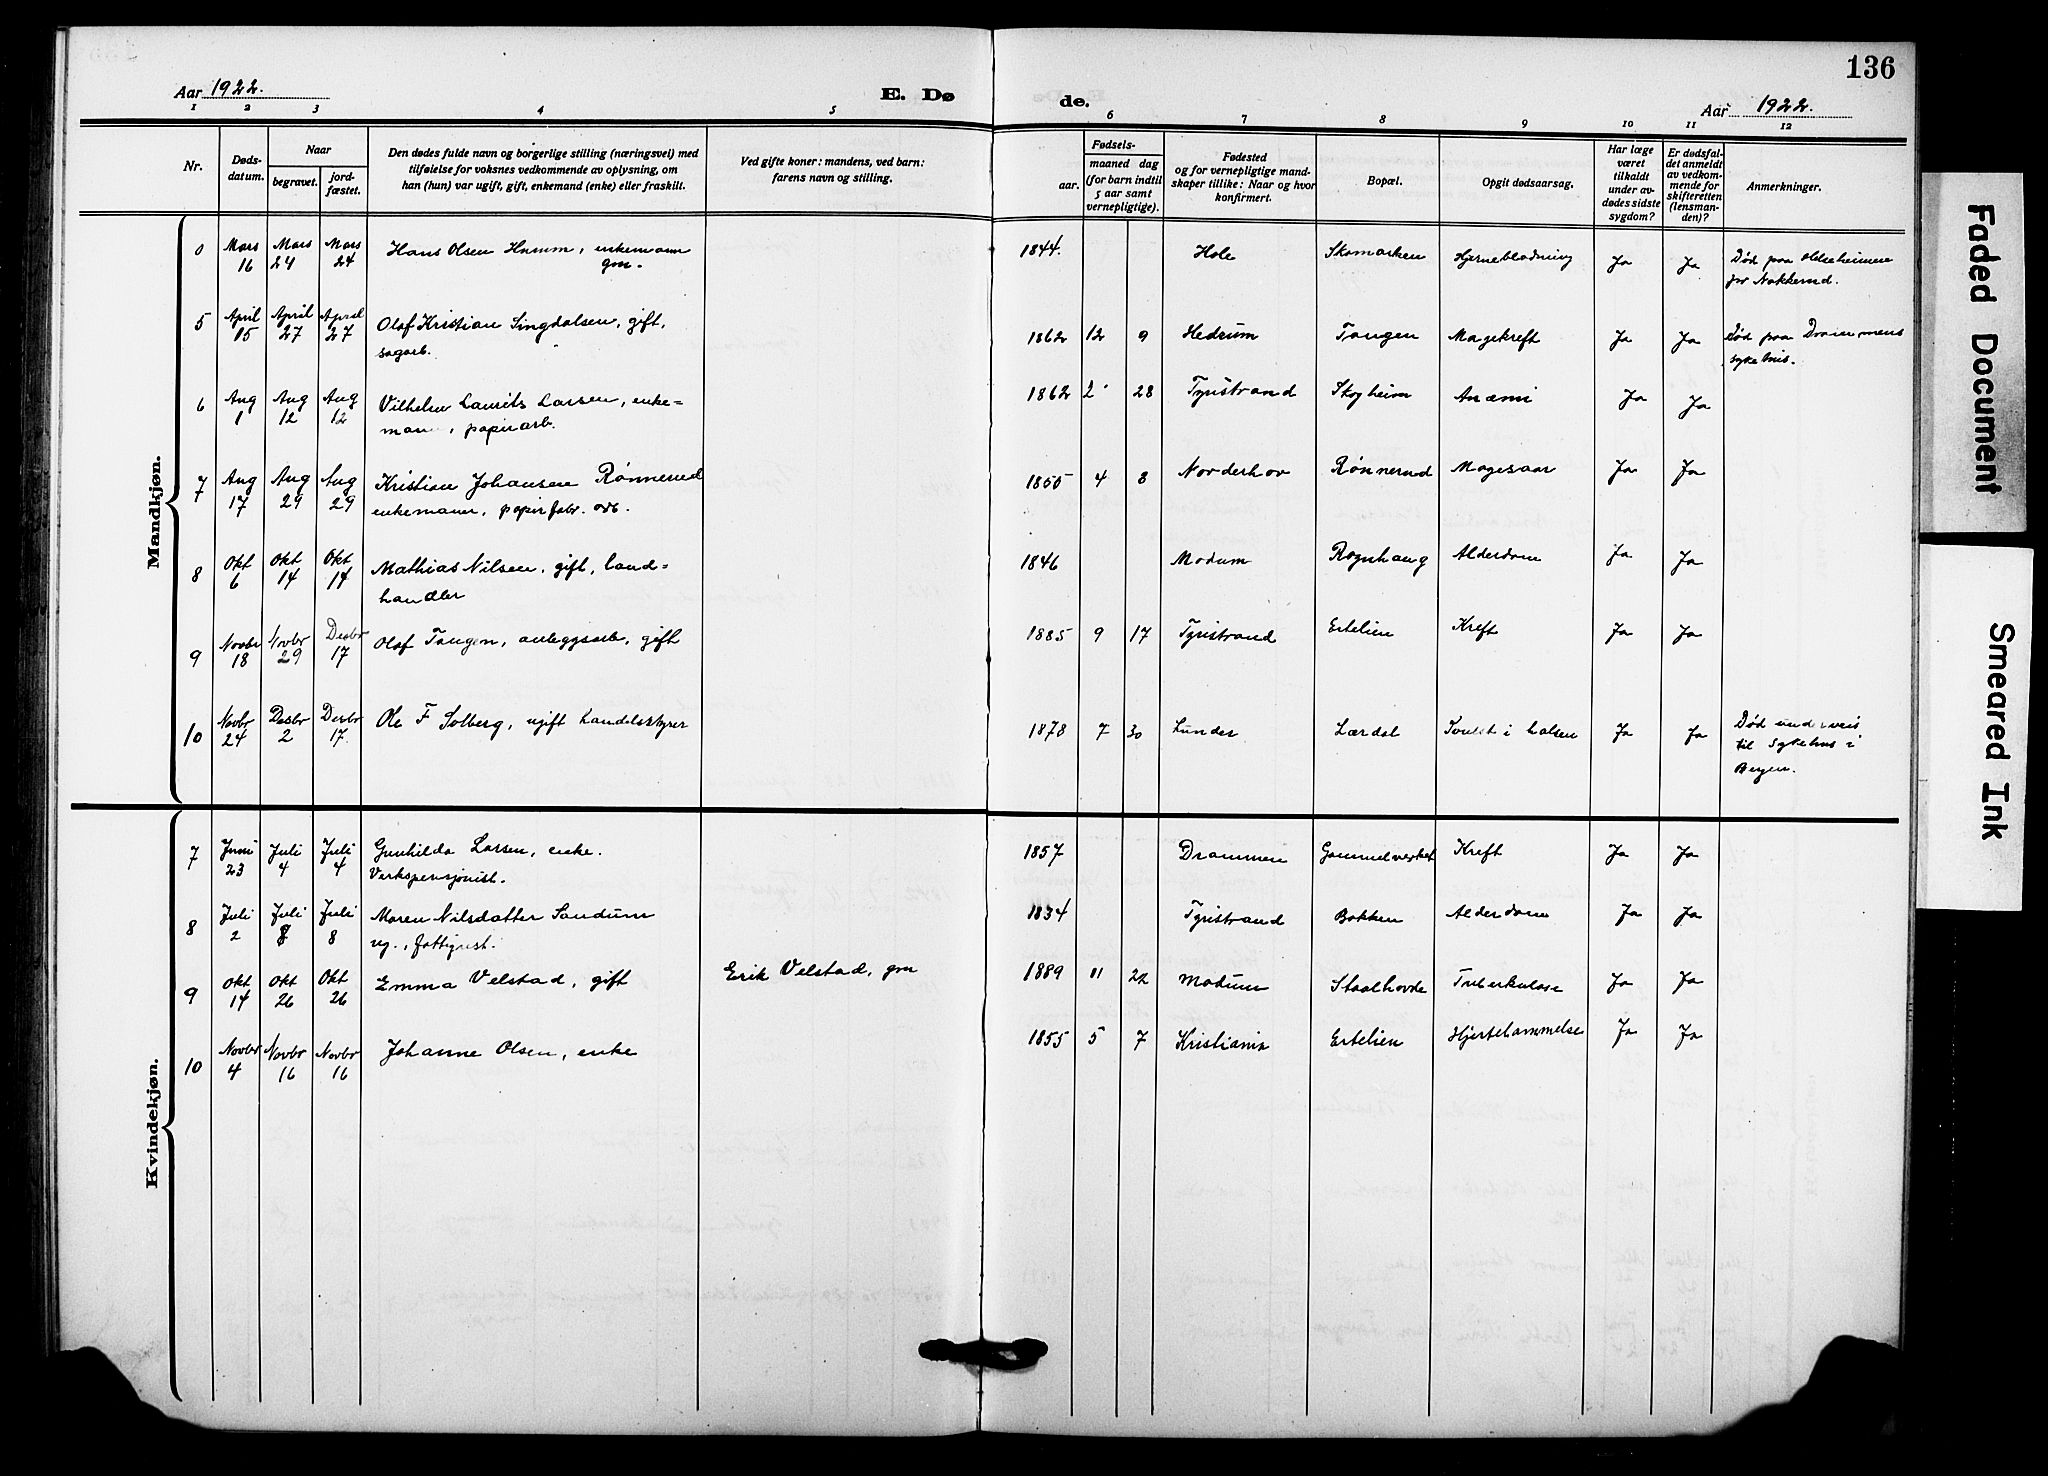 136
Aar 1922.
E. Dø de.
Aar 1922.
1 2 3 4 5 6 7 8 9 10 11 12
Nr.
Døds-
datum.
Naar
begravet.
jord-
fæstet.
Den dødes fulde navn og borgerlige stilling (næringsvei) med
tilføielse for voksnes vedkommende av oplysning, om
han (hun) var ugift, gift, enkemand (enke) eller fraskilt.
Ved gifte koner: mandens, ved barn:
farens navn og stilling.
Fødsels-
aar.
maaned dag
(for barn indtil
5 aar samt
vernepligtige).
Fødested
og for vernepligtige mand-
skaper tillike: Naar og hvor
konfirmert.
Bopæl.
Opgit dødsaarsag.
Har læge
været
tilkaldt
under av-
dødes sidste
sygdom?
Er dødsfal-
det anmeldt
av vedkom-
mende for
skifteretten
(lensman-
den)?
Anmerkninger.
Mandkjøn.
0 Mars 16 Mars 24 Mars 24 Hans Olsen Hamm, enkemann
gm.
1844. Hole Skomarken Hjerneblødning Ja Ja Død paa
for Nakkerud.
5 April 15 April 27 April 27 Olaf Kristian Singdalsen, gift,
sagarb.
1862 12 9 Hedrum Tangen Magekreft Ja Ja Død paa Drammens
sykehus.
6 Aug 1 Aug 12 Aug 12 Vilhelm Laurits Larsen, enke=
mann, papirarb.
1862 2 28 Tyristrand Skogheim Anæmi Ja Ja
7 Aug 17 Aug 29 Aug 29 Kristian Johansen Rønnerud
enkemann, papirfabr. arb.
1855 4 8 Norderhov Rønnerud Magesaar Ja Ja
8 Okt 6 Okt 14 Okt 14 Mathias Nilsen, gift, land=
handler
1846 Modum Rognhaug Alderdom Ja Ja
9 Novbr 18 Novbr 29 Desbr 17 Olaf Tangen, anleggsarb, gift
1885 9 17 Tyristrand Ertelien Kreft Ja Ja
10 Novbr 24 Desbr 2 Desbr 17. Ole F Solberg, ugift handelsstyrer
1878 7 30 Lunder Lærdal i halsen Ja Ja Død underveis
til sykehus i
Bergen.
Kvindekjøn.
7 Juni 23 Juli 4 Juli 4 Gunhilda Larsen, enke.
Verkspensjonist.
1857 Drammen Gammelverket Kreft Ja Ja
8 Juli 2 Juli 8 Juli 8 Maren Nilsdatter Sandum
ug., fattigunst.
1834 Tyristrand Bakken Alderdom Ja Ja
9 Okt 14 Okt 26 Okt 26 Emma Velstad, gift Erik Velstad, gm
1889 11 22 Modum Staalhovde Tuberkulose Ja Ja
10 Novbr 4 Novbr 16 Novbr 16 Johanne Olsen, enke
1855 5 7 Kristiania Ertelien Hjertelammelse Ja Ja
Faded Document
Smeared Ink